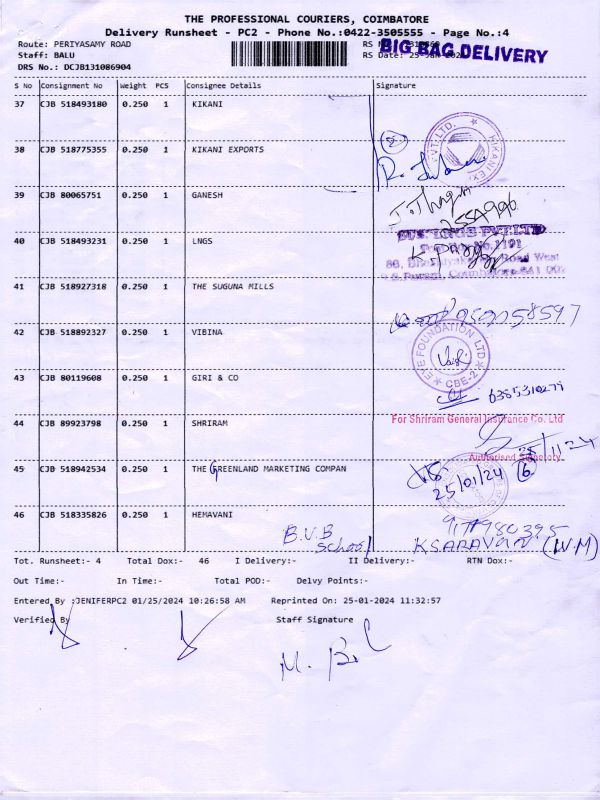 THE PROFESSIONAL COURIERS, COIMBATORE
Delivery Runsheet - PC2 - Phone No.:0422-3505555 - Page No.:4
Route: PERIYASAMY ROAD
Staff: BALU
RS Date: 25-
BIG BAG DELIVERY
DRS No.: DCJB131086904
S No Consignment No Weight PCS Consignee Details Signature
37 CJB 518493180 0.250 1 KIKANI
38 CJB 518775355 0.250 1 KIKANI EXPORTS
PVT. LTD
39 CJB 80065751 0.250 1 GANESH
40 CJB 518493231 0.250 1 LNGS
41 CJB 518927318 0.250 1 THE SUGUNA MILLS
42 CJB 518892327 0.250 1 VIBINA
EYE FOUNDATION LTD
CBE-2
43 CJB 80119608 0.250 1 GIRI & CO
44 CJB 89923798 0.250 1 SHRIRAM
For Shriram General Insurance Co. Ltd
Authorised Signatory
45 CJB 518942534 0.250 1 THE GREENLAND MARKETING COMPAN
25/01/24
6
46 CJB 518335826 0.250 1 HEMAVANI
B.V.B
School
K SARAVAN (W.M)
Tot. Runsheet:- 4 Total Dox:- 46 I Delivery:- II Delivery:- RTN Dox:-
Out Time:- In Time:- Total POD:- Delvy Points:-
Entered By :JENIFERPC2 01/25/2024 10:26:58 AM Reprinted On: 25-01-2024 11:32:57
Verified By Staff Signature